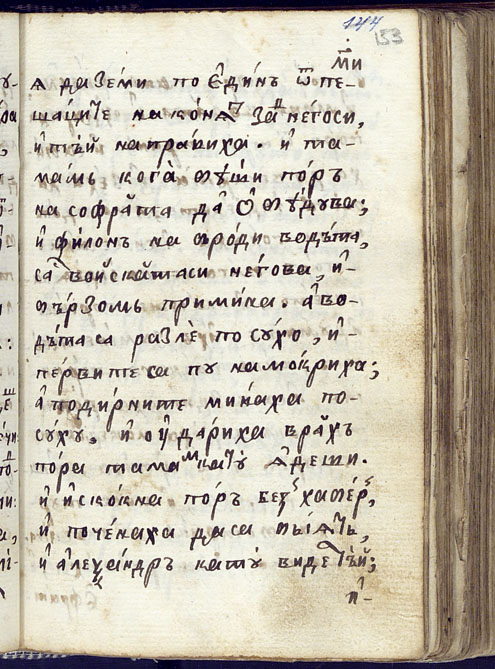 144
153
ми
ѧ да земи по є҆динъ ѿ пе-
шаците на конѧт задъ негоси,
и҆ тъй направиха. и҆ та-
мамъ кога ѿиде поръ
на софрата да
и҆ филонъ на броди водъта,
са войскатаси негова, и҆-
бързомъ примина. а҆ во-
дъта са разлѐ по сухо, и҆-
първите са пу намокриха;
а҆ подирните минаха по-
суху. и҆ ѹ҆дариха врахъ
пора тамамъ като ѧ҆деши.
и҆ и҆скокна поръ безъ хаберъ,
и҆ почена́ха даса биѧтъ,
и҆ а҆леѯандръ като виде тъй;
и҆-